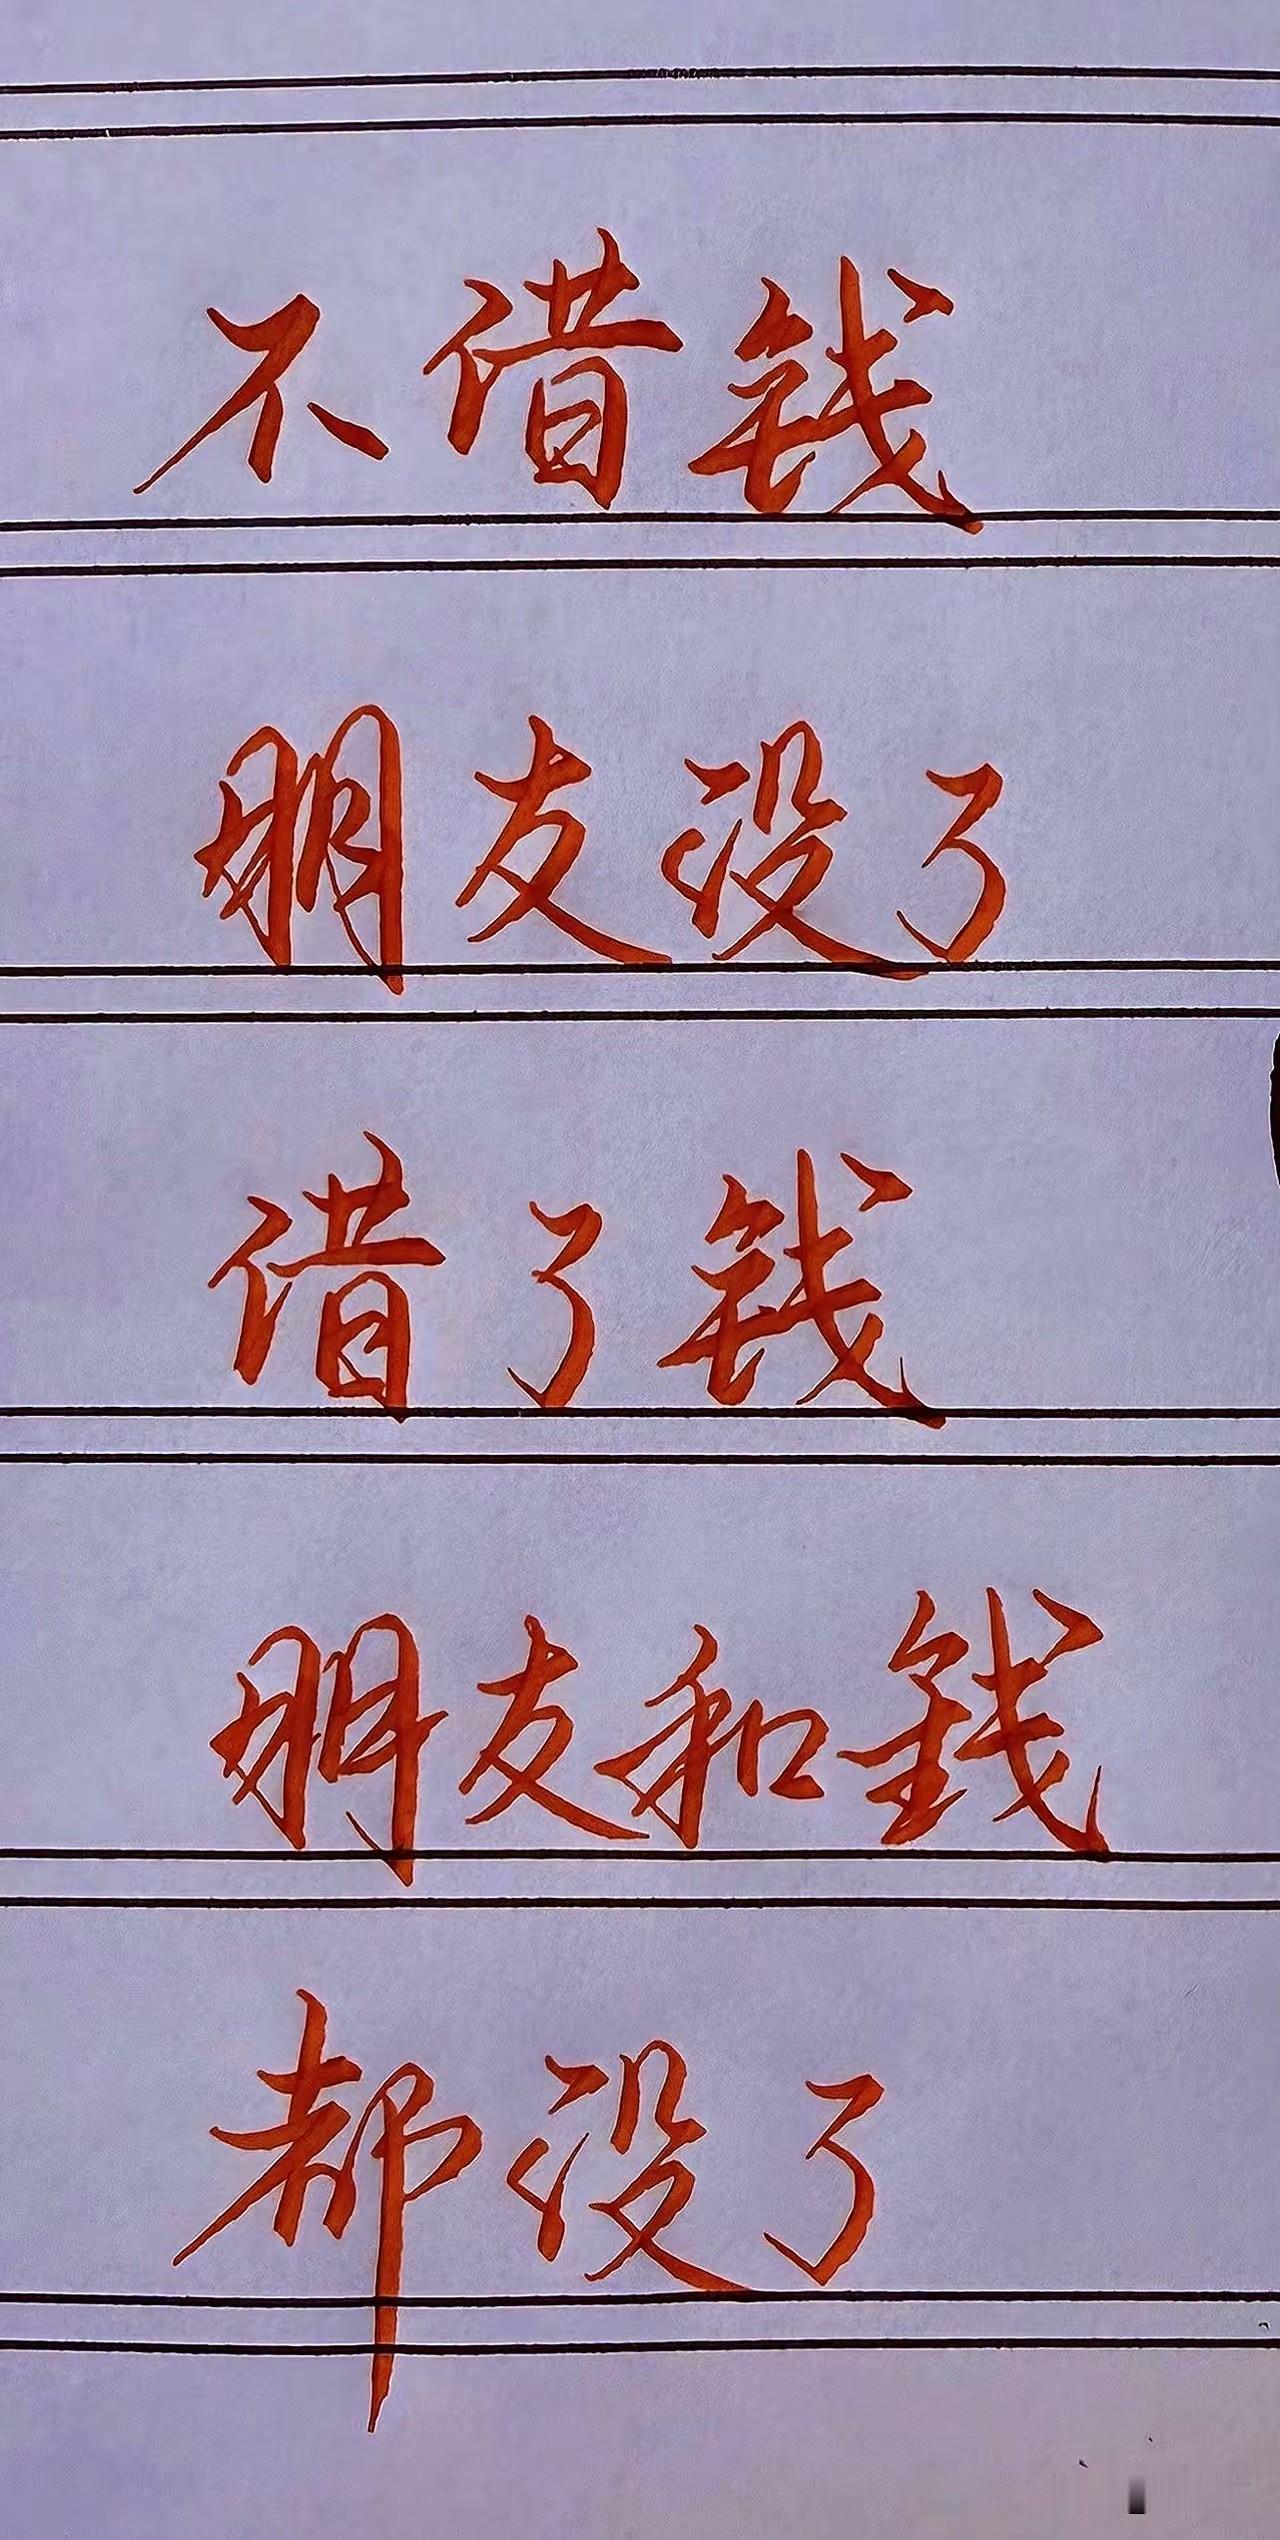 不借钱
朋友没了
借了钱
朋友和錢
都没了